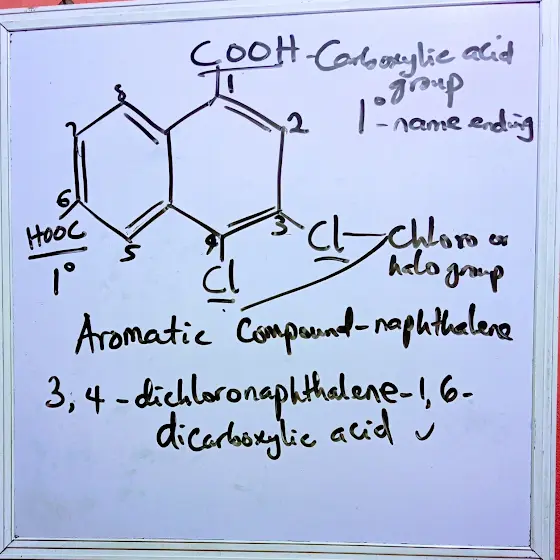 COOH - Carboxylic acid
group
1° - name ending
1
8
2
7
6
HOOC
1°
5
4
3
Cl
Cl
Chloro or
halo group
Aromatic Compound - naphthalene
3, 4 - dichloronaphthalene - 1, 6 -
dicarboxylic acid ✓